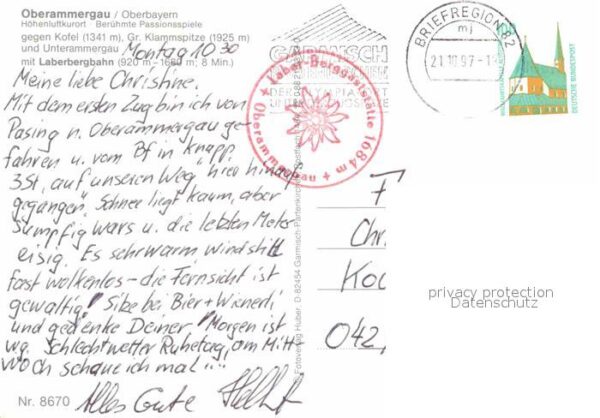 Oberammergau / Oberbayern
Höhenluftkurort · Berühmte Passionsspiele
gegen Kofel (1341 m), Gr. Klammspitze (1925 m)
und Unterammergau
mit Laberbergbahn (920 m - 1680 m; 8 Min.)
Montag 10 30
Meine liebe Christine.
Mit dem ersten Zug bin ich von
Pasing n. Oberammergau ge-
fahren u. vom Bf in knapp
3 St. "auf unseren Weg" hier hinauf
gegangen. Schnee liegt kaum, aber
sumpfig wars u. die letzten Meter
eisig. Es sehr warm windstill
fast wolkenlos - die Fernsicht ist
gewaltig! Sitze bei Bier + Wienerli
und gedenke Deiner. Morgen ist
wg. Schlechtwetter Ruhetag, am Mitt
woch schaue ich mal...
Alles Gute
Nr. 8670
Laber-Berggaststätte 1684 m + Oberammergau +
GARMISCH
BRIEFREGION 82
mj
21.10.97
DEUTSCHE BUNDESPOST
Fotoverlag Huber, D 82454 Garmisch-Partenkirchen
F
Chr
Koc
042
privacy protection
Datenschutz